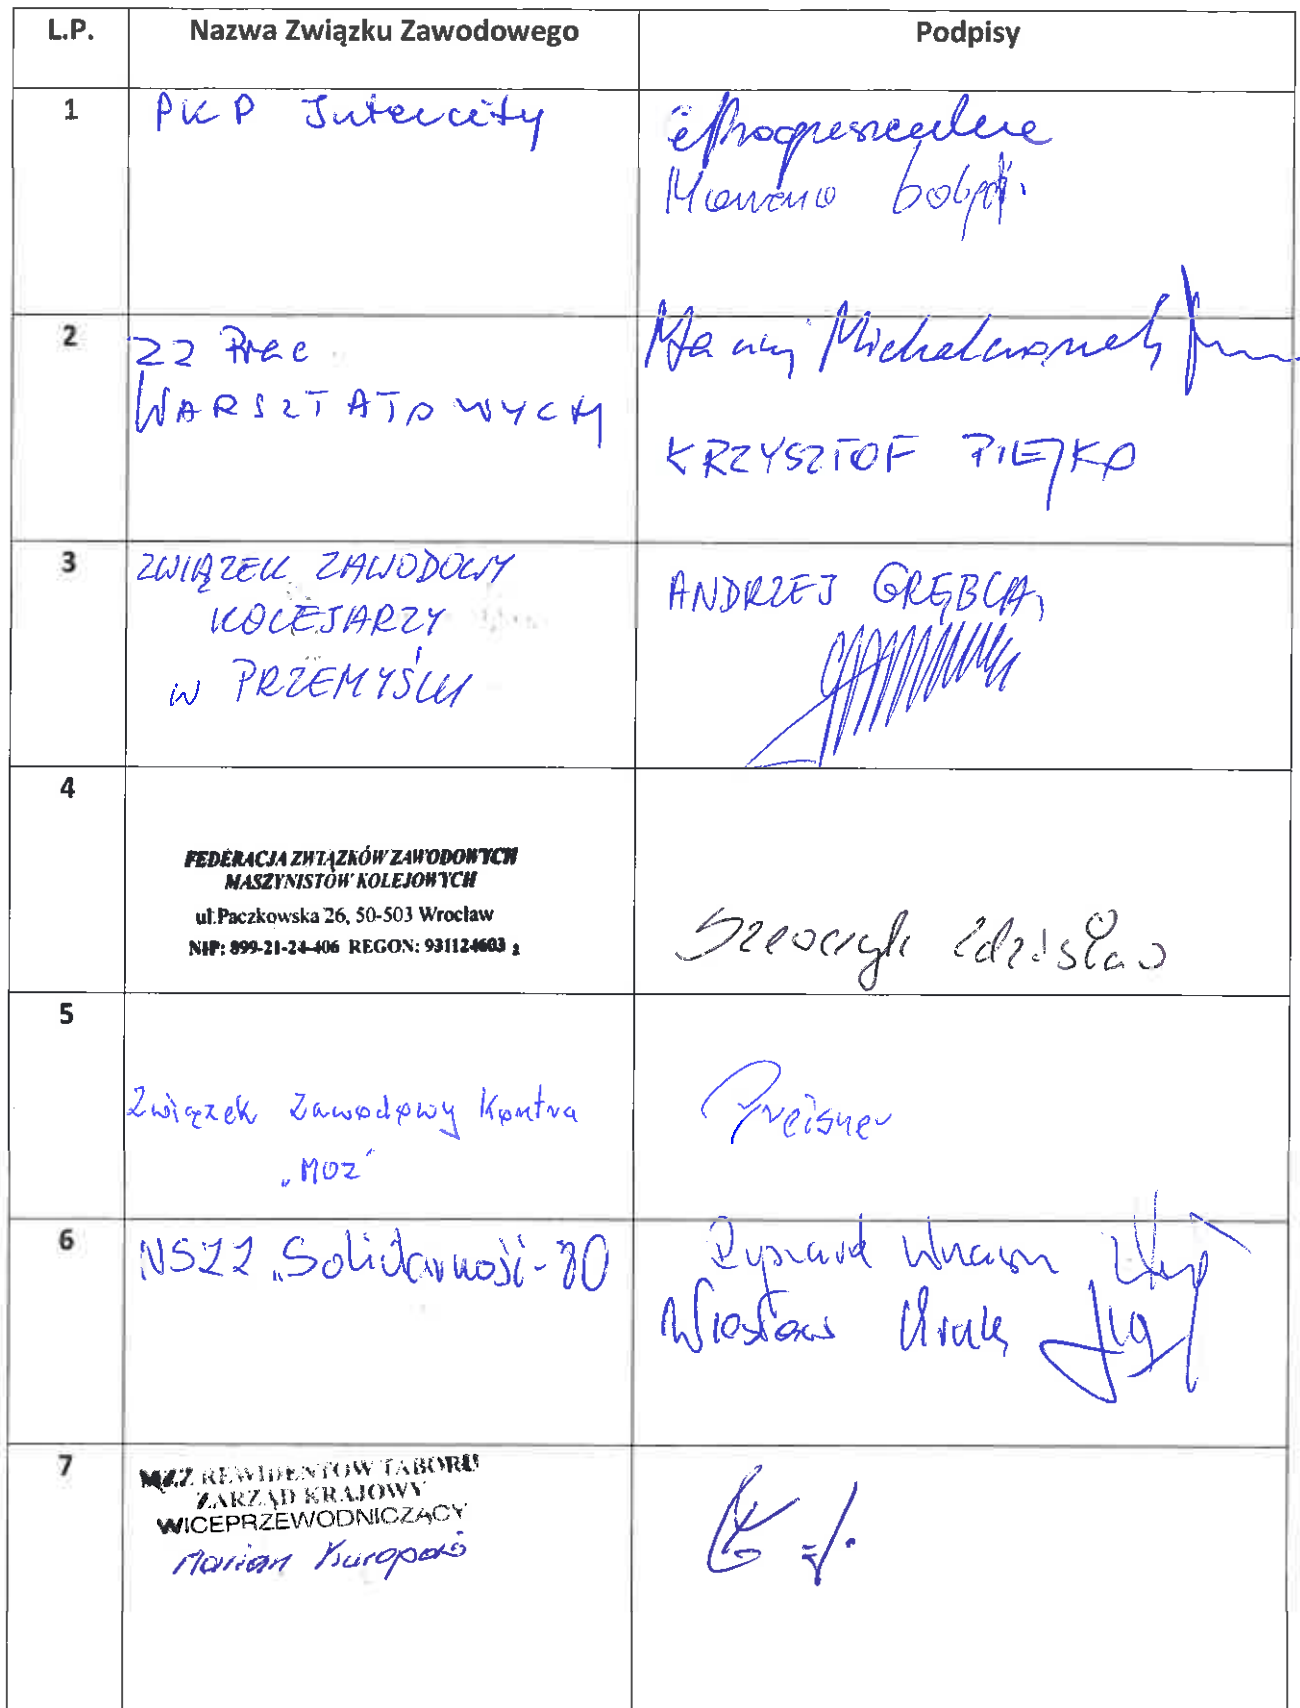 L.P. Nazwa Związku Zawodowego Podpisy
1 PKP Intercity
2 ZZ Prac
WARSZTATOWYCH
KRZYSZTOF PIEJKO
3 ZWIĄZEK ZAWODOWY
KOLEJARZY
w PRZEMYŚLU
ANDRZEJ GRĘBCA
4
FEDERACJA ZWIĄZKÓW ZAWODOWYCH
MASZYNISTÓW KOLEJOWYCH
ul. Paczkowska 26, 50-503 Wrocław
NIP: 899-21-24-406 REGON: 931124603
Zdzisław
5
Związek Zawodowy Kontra
„MOZ"
Preisner
6 NSZZ „Solidarność-80
Ryszard
Wiesław
7
MZZ REWIDENTÓW TABORU
ZARZĄD KRAJOWY
WICEPRZEWODNICZĄCY
Marian